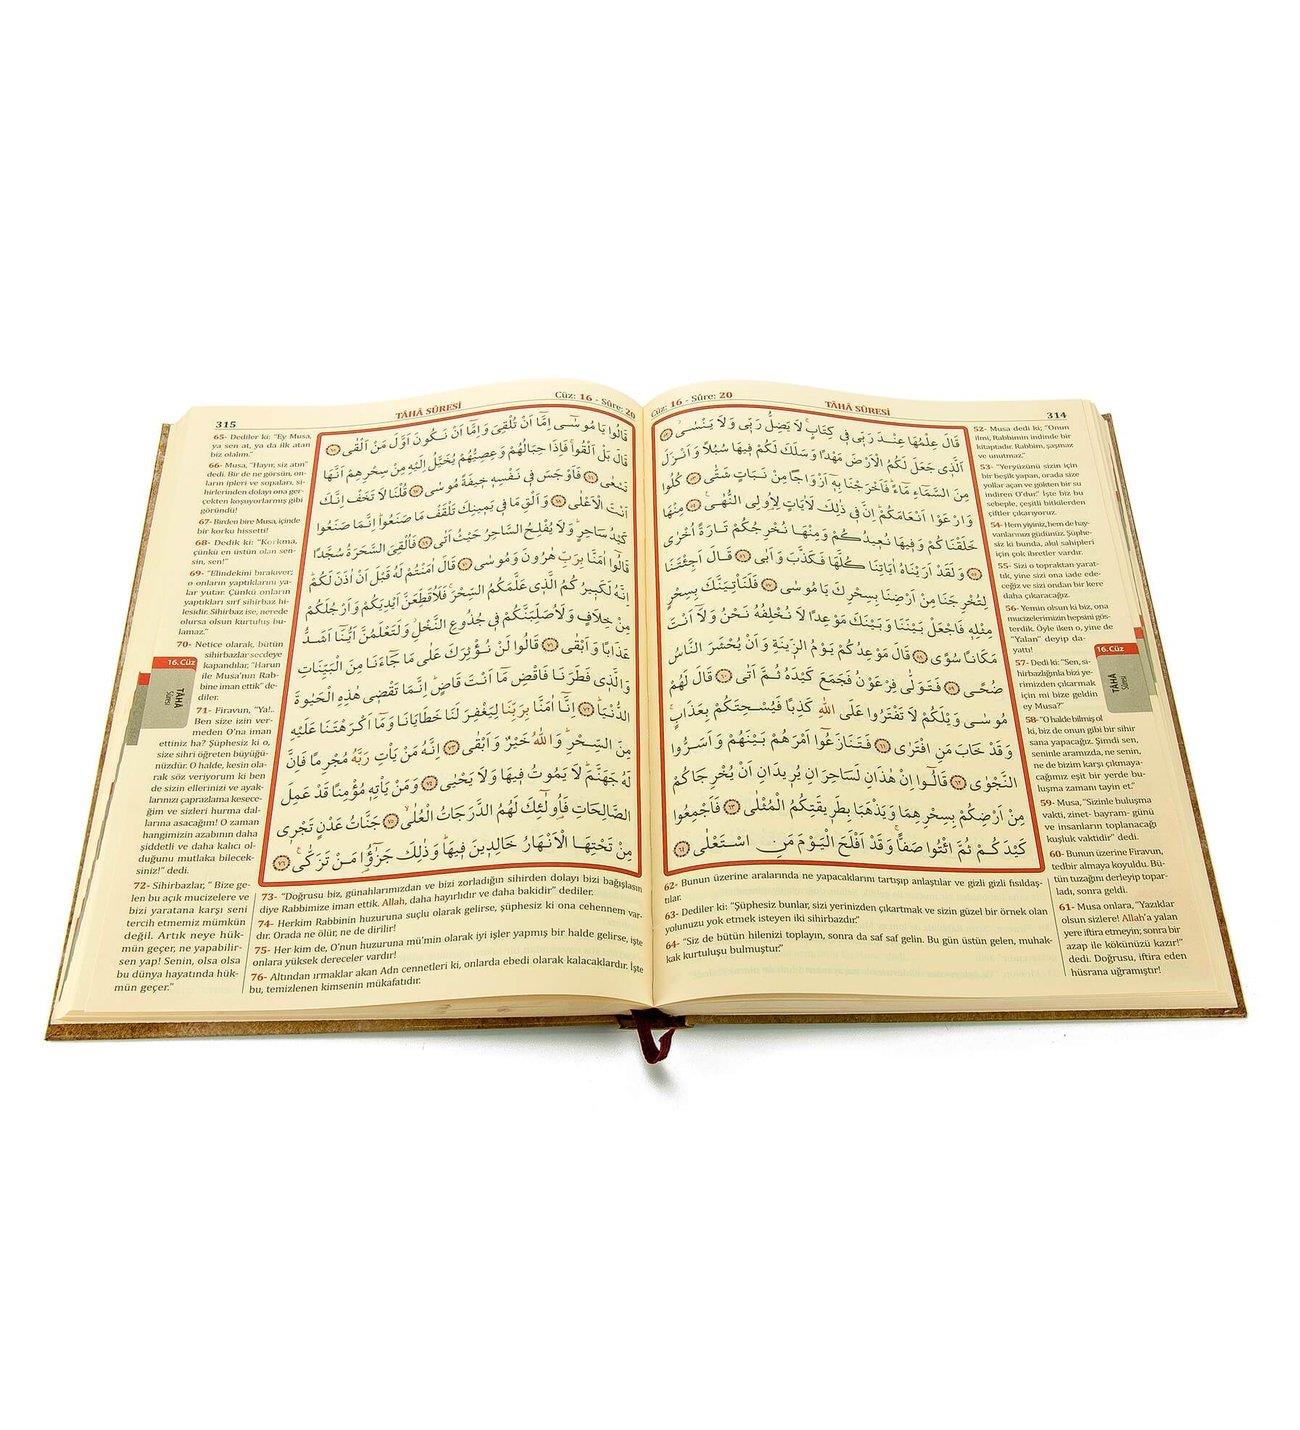 Cüz: 16 - Sûre: 20 TÂHÂ SÛRESİ 314
قَالَ عِلْمُهَا عِنْدَ رَبّٖي فٖي كِتَابٍۚ لَا يَضِلُّ رَبّٖي وَلَا يَنْسٰىۘ ﴿٥٢﴾
اَلَّذٖي جَعَلَ لَكُمُ الْاَرْضَ مَهْدًا وَسَلَكَ لَكُمْ فٖيهَا سُبُلًا وَاَنْزَلَ
مِنَ السَّمَٓاءِ مَٓاءًۜ فَاَخْرَجْنَا بِهٖٓ اَزْوَاجًا مِنْ نَبَاتٍ شَتّٰى ﴿٥٣﴾ كُلُوا
وَارْعَوْا اَنْعَامَكُمْۜ اِنَّ فٖي ذٰلِكَ لَاٰيَاتٍ لِاُو۬لِي النُّهٰىۚ ﴿٥٤﴾ مِنْهَا
خَلَقْنَاكُمْ وَفٖيهَا نُعٖيدُكُمْ وَمِنْهَا نُخْرِجُكُمْ تَارَةً اُخْرٰى
﴿٥٥﴾ وَلَقَدْ اَرَيْنَاهُ اٰيَاتِنَا كُلَّهَا فَكَذَّبَ وَاَبٰى ﴿٥٦﴾ قَالَ اَجِئْتَنَا
لِتُخْرِجَنَا مِنْ اَرْضِنَا بِسِحْرِكَ يَا مُوسٰى ﴿٥٧﴾ فَلَنَأْتِيَنَّكَ بِسِحْرٍ
مِثْلِهٖ فَاجْعَلْ بَيْنَنَا وَبَيْنَكَ مَوْعِدًا لَا نُخْلِفُهُ نَحْنُ وَلَٓا اَنْتَ
مَكَانًا سُوًى ﴿٥٨﴾ قَالَ مَوْعِدُكُمْ يَوْمُ الزّٖينَةِ وَاَنْ يُحْشَرَ النَّاسُ
ضُحًى ﴿٥٩﴾ فَتَوَلّٰى فِرْعَوْنُ فَجَمَعَ كَيْدَهُ ثُمَّ اَتٰى ﴿٦٠﴾ قَالَ لَهُمْ
مُوسٰى وَيْلَكُمْ لَا تَفْتَرُوا عَلَى اللّٰهِ كَذِبًا فَيُسْحِتَكُمْ بِعَذَابٍۚ
وَقَدْ خَابَ مَنِ افْتَرٰى ﴿٦١﴾ فَتَنَازَعُٓوا اَمْرَهُمْ بَيْنَهُمْ وَاَسَرُّوا
النَّجْوٰى ﴿٦٢﴾ قَالُٓوا اِنْ هٰذَانِ لَسَاحِرَانِ يُرٖيدَانِ اَنْ يُخْرِجَاكُمْ
مِنْ اَرْضِكُمْ بِسِحْرِهِمَا وَيَذْهَبَا بِطَرٖيقَتِكُمُ الْمُثْلٰى ﴿٦٣﴾ فَاَجْمِعُوا
كَيْدَكُمْ ثُمَّ ائْتُوا صَفًّاۚ وَقَدْ اَفْلَحَ الْيَوْمَ مَنِ اسْتَعْلٰى ﴿٦٤﴾
52- Musa dedi ki; “Onun
ilmi, Rabbimin indinde bir
kitaptadır. Rabbim, şaşmaz
ve unutmaz.”
53- “Yeryüzünü sizin için
bir beşik yapan, orada size
yollar açan ve gökten bir su
indiren O’dur.” İşte biz bu
sebeple, çeşitli bitkilerden
çiftler çıkarıyoruz.
54- Hem yiyiniz, hem de hay-
vanlarınızı güdünüz. Şüphe-
siz ki bunda, akıl sahipleri
için çok ibretler vardır.
55- Sizi o topraktan yarat-
tık, yine sizi ona iade ede-
ceğiz ve sizi ondan bir kere
daha çıkaracağız.
56- Yemin olsun ki biz, ona
mucizelerimizin hepsini gös-
terdik. Öyle iken o, yine de
“Yalan” deyip da-
yattı!
57- Dedi ki: “Sen, si-
hirbazlığınla bizi ye-
rimizden çıkarmak
için mi bize geldin
ey Musa?”
58- “O halde bilmiş ol
ki, biz de onun gibi bir sihir
sana yapacağız. Şimdi sen,
seninle aramızda, ne senin,
ne de bizim karşı çıkmaya-
cağımız eşit bir yerde bu-
luşma zamanı tayin et.”
59- Musa, “Sizinle buluşma
vakti, zinet- bayram- günü
ve insanların toplanacağı
kuşluk vaktidir” dedi.
60- Bunun üzerine Firavun,
tedbir almaya koyuldu. Bü-
tün tuzağını derleyip topar-
ladı, sonra geldi.
61- Musa onlara, “Yazıklar
olsun sizlere! Allah’a yalan
yere iftira etmeyin; sonra bir
azap ile kökünüzü kazır!”
dedi. Doğrusu, iftira eden
hüsrana uğramıştır!
16.Cüz
TÂHÂ
Sûresi
62- Bunun üzerine aralarında ne yapacaklarını tartışıp anlaştılar ve gizli gizli fısıldaş-
tılar.
63- Dediler ki: “Şüphesiz bunlar, sizi yerinizden çıkartmak ve sizin güzel bir örnek olan
yolunuzu yok etmek isteyen iki sihirbazdır.”
64- “Siz de bütün hilenizi toplayın, sonra da saf saf gelin. Bu gün üstün gelen, muhak-
kak kurtuluşu bulmuştur.”
315 TÂHÂ SÛRESİ Cüz: 16 - Sûre: 20
قَالُوا يَا مُوسٰٓى اِمَّٓا اَنْ تُلْقِيَ وَاِمَّٓا اَنْ نَكُونَ اَوَّلَ مَنْ اَلْقٰى ﴿٦٥﴾
قَالَ بَلْ اَلْقُواۚ فَاِذَا حِبَالُهُمْ وَعِصِيُّهُمْ يُخَيَّلُ اِلَيْهِ مِنْ سِحْرِهِمْ اَنَّهَا
تَسْعٰى ﴿٦٦﴾ فَاَوْجَسَ فٖي نَفْسِهٖ خٖيفَةً مُوسٰى ﴿٦٧﴾ قُلْنَا لَا تَخَفْ اِنَّكَ
اَنْتَ الْاَعْلٰى ﴿٦٨﴾ وَاَلْقِ مَا فٖي يَمٖينِكَ تَلْقَفْ مَا صَنَعُواۜ اِنَّمَا صَنَعُوا
كَيْدُ سَاحِرٍۜ وَلَا يُفْلِحُ السَّاحِرُ حَيْثُ اَتٰى ﴿٦٩﴾ فَاُلْقِيَ السَّحَرَةُ سُجَّدًا
قَالُٓوا اٰمَنَّا بِرَبِّ هٰرُونَ وَمُوسٰى ﴿٧٠﴾ قَالَ اٰمَنْتُمْ لَهُ قَبْلَ اَنْ اٰذَنَ لَكُمْۜ
اِنَّهُ لَكَبٖيرُكُمُ الَّذٖي عَلَّمَكُمُ السِّحْرَۚ فَلَاُقَطِّعَنَّ اَيْدِيَكُمْ وَاَرْجُلَكُمْ
مِنْ خِلَافٍ وَلَاُصَلِّبَنَّكُمْ فٖي جُذُوعِ النَّخْلِۘ وَلَتَعْلَمُنَّ اَيُّنَٓا اَشَدُّ
عَذَابًا وَاَبْقٰى ﴿٧١﴾ قَالُوا لَنْ نُؤْثِرَكَ عَلٰى مَا جَٓاءَنَا مِنَ الْبَيِّنَاتِ
وَالَّذٖي فَطَرَنَا فَاقْضِ مَٓا اَنْتَ قَاضٍۜ اِنَّمَا تَقْضٖي هٰذِهِ الْحَيٰوةَ
الدُّنْيَاۜ ﴿٧٢﴾ اِنَّٓا اٰمَنَّا بِرَبِّنَا لِيَغْفِرَ لَنَا خَطَايَانَا وَمَٓا اَكْرَهْتَنَا عَلَيْهِ
مِنَ السِّحْرِۜ وَاللّٰهُ خَيْرٌ وَاَبْقٰى ﴿٧٣﴾ اِنَّهُ مَنْ يَأْتِ رَبَّهُ مُجْرِمًا فَاِنَّ
لَهُ جَهَنَّمَۜ لَا يَمُوتُ فٖيهَا وَلَا يَحْيٰى ﴿٧٤﴾ وَمَنْ يَأْتِهٖ مُؤْمِنًا قَدْ عَمِلَ
الصَّالِحَاتِ فَاُو۬لٰٓئِكَ لَهُمُ الدَّرَجَاتُ الْعُلٰىۙ ﴿٧٥﴾ جَنَّاتُ عَدْنٍ تَجْرٖي
مِنْ تَحْتِهَا الْاَنْهَارُ خَالِدٖينَ فٖيهَاۜ وَذٰلِكَ جَزٰٓؤُ۬ا مَنْ تَزَكّٰى۟ ﴿٧٦﴾
65- Dediler ki: “Ey Musa,
ya sen at, ya da ilk atan
biz olalım.”
66- Musa, “Hayır, siz atın”
dedi. Bir de ne görsün, on-
ların ipleri ve sopaları, si-
hirlerinden dolayı ona ger-
çekten koşuyorlarmış gibi
göründü!
67- Birden bire Musa, içinde
bir korku hissetti!
68- Dedik ki: “Korkma,
çünkü en üstün olan sen-
sin, sen!”
69- “Elindekini bırakıver;
o onların yaptıklarını ya-
lar yutar. Çünkü onların
yaptıkları sırf sihirbaz hi-
lesidir. Sihirbaz ise, nerede
olursa olsun kurtuluş bu-
lamaz.”
70- Netice olarak, bütün
sihirbazlar secdeye
kapandılar, “Harun
ile Musa’nın Rab-
bine iman ettik” de-
diler.
71- Firavun, “Ya!..
Ben size izin ver-
meden O’na iman
ettiniz ha? Şüphesiz ki o,
size sihri öğreten büyüğü-
nüzdür. O halde, kesin ola-
rak söz veriyorum ki ben
de sizin ellerinizi ve ayak-
larınızı çaprazlama kesece-
ğim ve sizleri hurma dal-
larına asacağım! O zaman
hangimizin azabının daha
şiddetli ve daha kalıcı ol-
duğunu mutlaka bilecek-
siniz!” dedi.
72- Sihirbazlar, “ Bize ge-
len bu açık mucizelere ve
bizi yaratana karşı seni
tercih etmemiz mümkün
değil. Artık neye hük-
mün geçer, ne yapabilir-
sen yap! Senin, olsa olsa
bu dünya hayatında hük-
mün geçer.”
16.Cüz
TÂHÂ
Sûresi
73- “Doğrusu biz, günahlarımızdan ve bizi zorladığın sihirden dolayı bizi bağışlasın
diye Rabbimize iman ettik. Allah, daha hayırlıdır ve daha bakidir” dediler.
74- Herkim Rabbinin huzuruna suçlu olarak gelirse, şüphesiz ki ona cehennem var-
dır. Orada ne ölür, ne de dirilir!
75- Her kim de, O’nun huzuruna mü’min olarak iyi işler yapmış bir halde gelirse, işte
onlara yüksek dereceler vardır!
76- Altından ırmaklar akan Adn cennetleri ki, onlarda ebedi olarak kalacaklardır. İşte
bu, temizlenen kimsenin mükafatıdır.